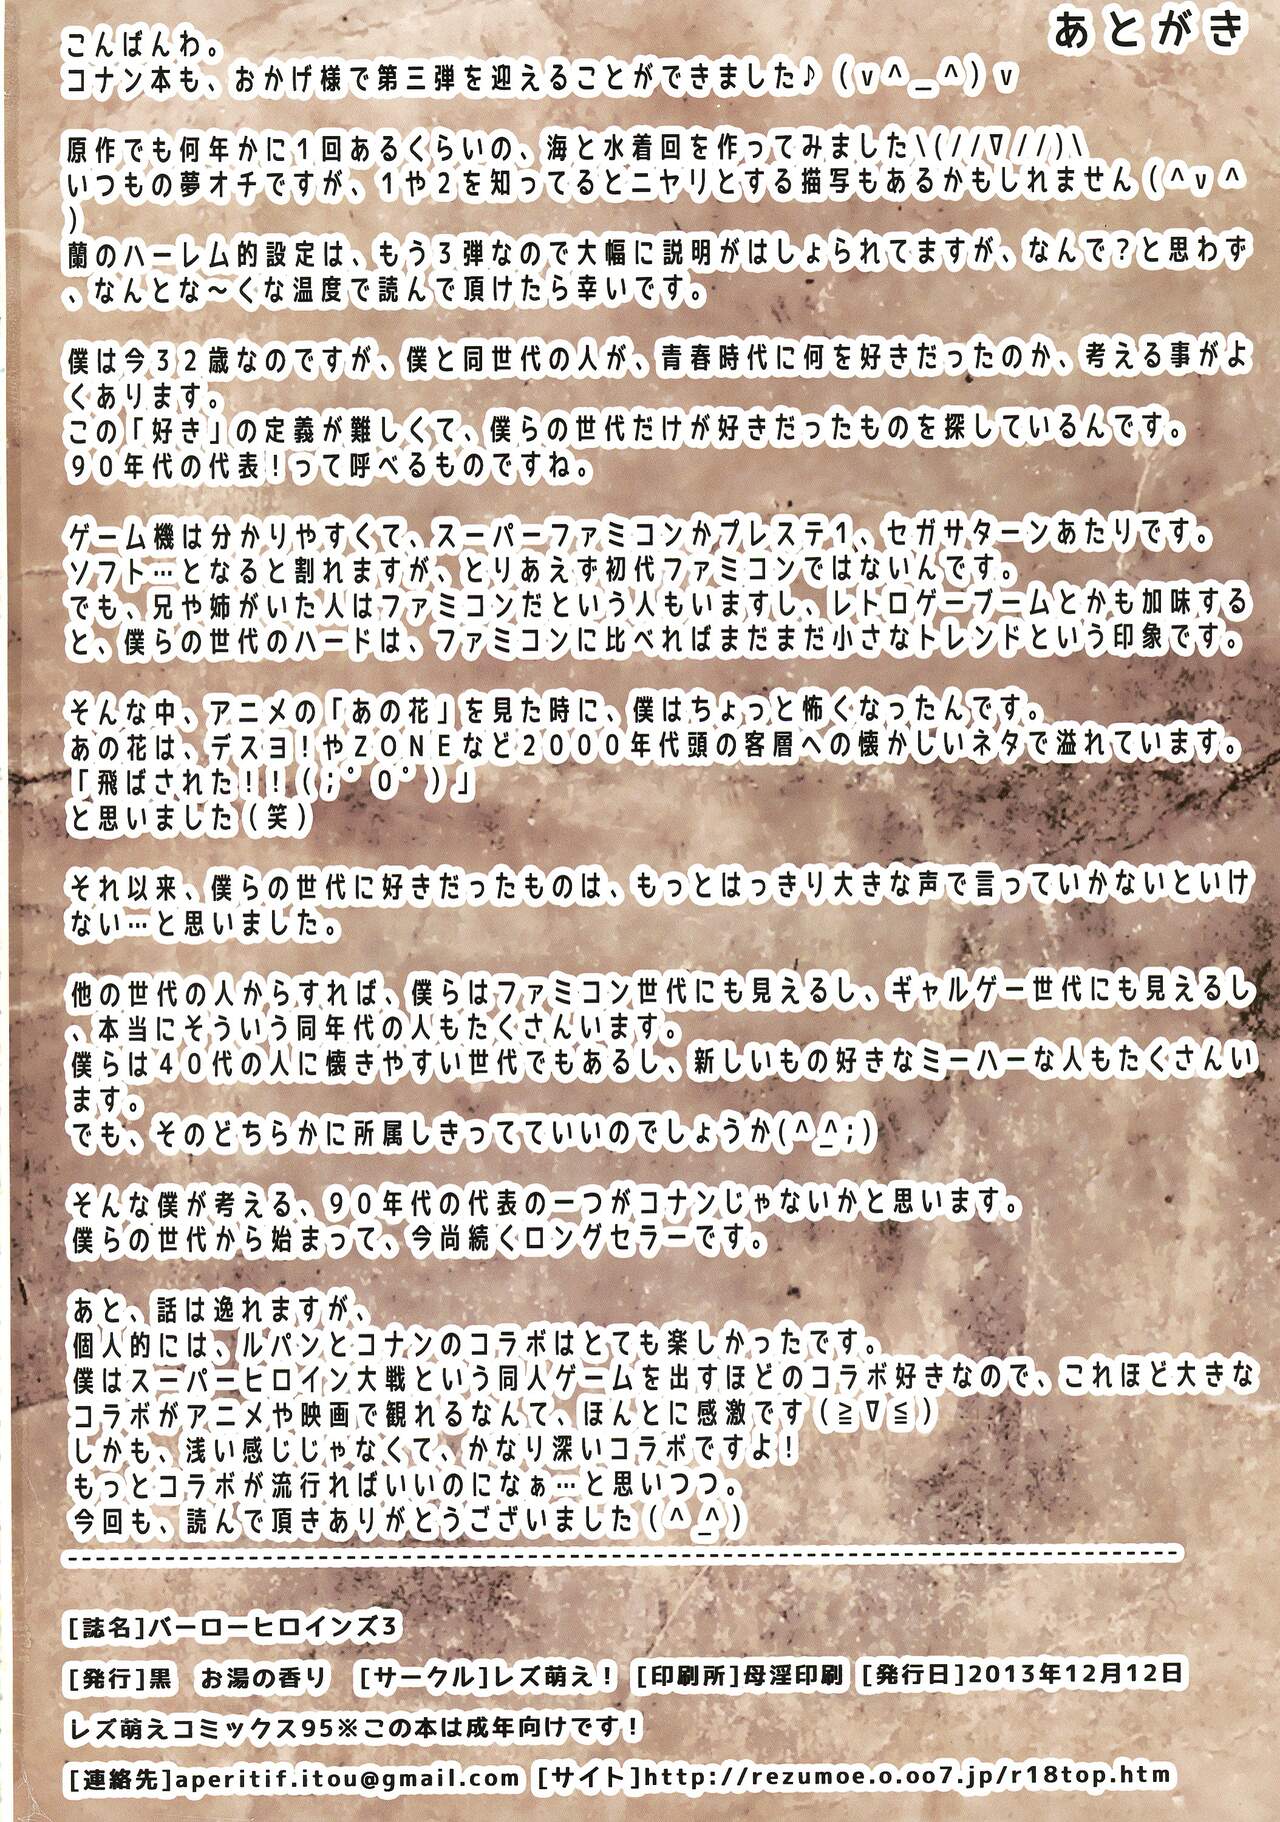 あとがき
こんばんわ。
コナン本も、おかげ様で第三弾を迎えることができました♪(v^_^)v
原作でも何年かに1回あるくらいの、海と水着回を作ってみました\(//∇//)\
いつもの夢オチですが、1や2を知ってるとニヤリとする描写もあるかもしれません(^v^
)
蘭のハーレム的設定は、もう3弾なので大幅に説明がはしょられてますが、なんで?と思わず
、なんとな〜くな温度で読んで頂けたら幸いです。
僕は今32歳なのですが、僕と同世代の人が、青春時代に何を好きだったのか、考える事がよ
くあります。
この「好き」の定義が難しくて、僕らの世代だけが好きだったものを探しているんです。
90年代の代表!って呼べるものですね。
ゲーム機は分かりやすくて、スーパーファミコンかプレステ1、セガサターンあたりです。
ソフト…となると割れますが、とりあえず初代ファミコンではないんです。
でも、兄や姉がいた人はファミコンだという人もいますし、レトロゲーブームとかも加味する
と、僕らの世代のハードは、ファミコンに比べればまだまだ小さなトレンドという印象です。
そんな中、アニメの「あの花」を見た時に、僕はちょっと怖くなったんです。
あの花は、デスヨ!やZONEなど2000年代頭の客層への懐かしいネタで溢れています。
「飛ばされた!!(;ﾟOﾟ)」
と思いました(笑)
それ以来、僕らの世代に好きだったものは、もっとはっきり大きな声で言っていかないといけ
ない…と思いました。
他の世代の人からすれば、僕らはファミコン世代にも見えるし、ギャルゲー世代にも見えるし
、本当にそういう同年代の人もたくさんいます。
僕らは40代の人に懐きやすい世代でもあるし、新しいもの好きなミーハーな人もたくさんい
ます。
でも、そのどちらかに所属しきってていいのでしょうか(^_^;)
そんな僕が考える、90年代の代表の一つがコナンじゃないかと思います。
僕らの世代から始まって、今尚続くロングセラーです。
あと、話は逸れますが、
個人的には、ルパンとコナンのコラボはとても楽しかったです。
僕はスーパーヒロイン大戦という同人ゲームを出すほどのコラボ好きなので、これほど大きな
コラボがアニメや映画で観れるなんて、ほんとに感激です(≧∇≦)
しかも、浅い感じじゃなくて、かなり深いコラボですよ!
もっとコラボが流行ればいいのになぁ…と思いつつ。
今回も、読んで頂きありがとうございました(^_^)
--------------------------------------------------------------------------------
[誌名]バーローヒロインズ3
[発行]黒　お湯の香り　[サークル]レズ萌え! [印刷所]母淫印刷 [発行日]2013年12月12日
レズ萌えコミックス95※この本は成年向けです!
[連絡先]aperitif.itou@gmail.com [サイト]http://rezumoe.o.oo7.jp/r18top.htm